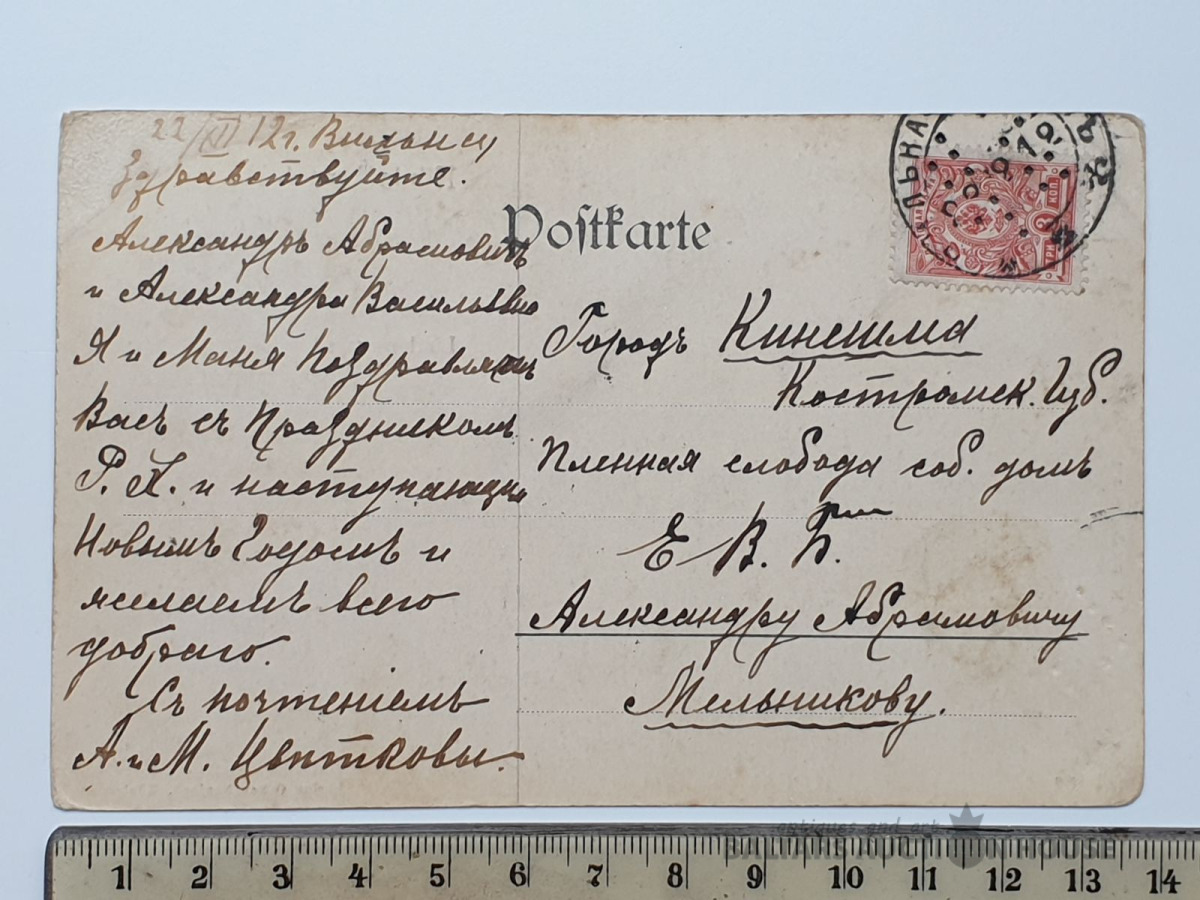 22/XII 12г. Вильна
Здравствуйте.
Александръ Абрамовичъ
и Александра Васильевна
Я и Маня Поздравляемъ
Васъ съ Праздникомъ
Р. Х. и наступающи
Новымъ Годомъ и
желаемъ всего
добраго.
Съ почтеніемъ
А. и М. Цвѣтковы.
Postkarte
Городъ Кинешма
Костромск. Губ.
Пленная слобода соб. домъ
Е В. Б.
Александру Абрамовичу
Мельникову.
3 КОП
ТРИ
antiques and art
BALTARS AUCTION HOUSE
1 2 3 4 5 6 7 8 9 10 11 12 13 14